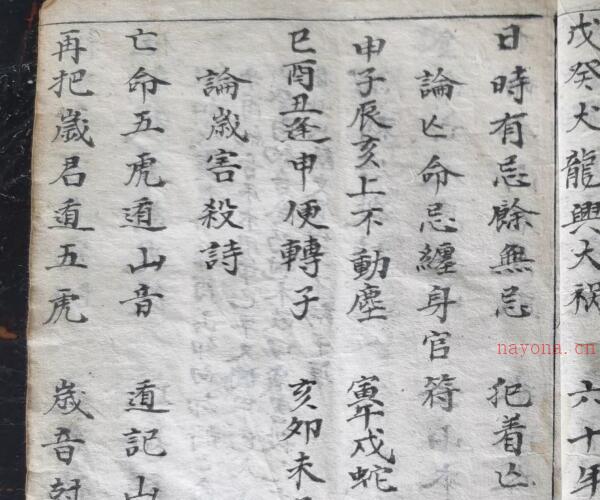 戊癸犬龍興大禍 六十年
日時有忌餘無忌 犯着亡
論亡命忌纏身官符
申子辰亥上不動塵 寅午戌蛇
巳酉丑逢申便轉子 亥卯未
論歲害殺詩
亡命五虎遁山音 遁記山
再把歲君遁五虎 歲音対
nayona.cn